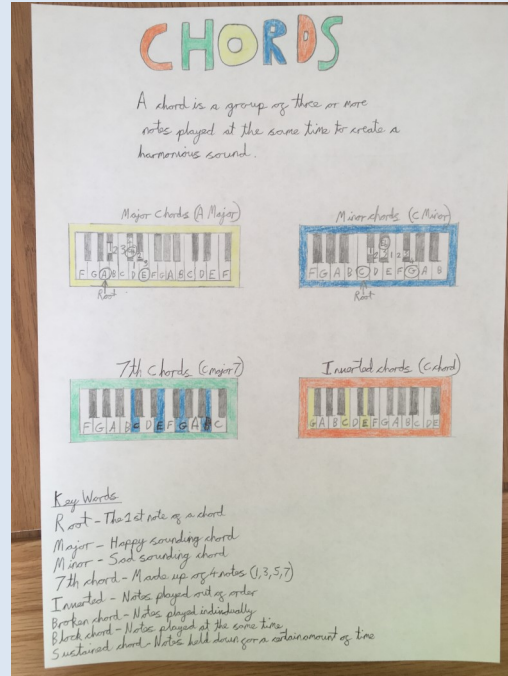 CHORDS
A chord is a group of three or more
notes played at the same time to create a
harmonious sound.
Major Chords (A Major)
Minor chords (C Minor)
F G A B C D E F G A B C D E F
F G A B C D E F G A B
Root
Root
7th Chords (C major 7)
Inverted chords (C chord)
F G A B C D E F G A B C
G A B C D E F G A B C D E
Key Words
Root - The 1st note of a chord
Major - Happy sounding chord
Minor - Sad sounding chord
7th chord - Made up of 4 notes (1,3,5,7)
Inverted - Notes played out of order
Broken chord - Notes played individually
Block chord - Notes played at the same time
Sustained chord - Notes held down for a certain amount of time